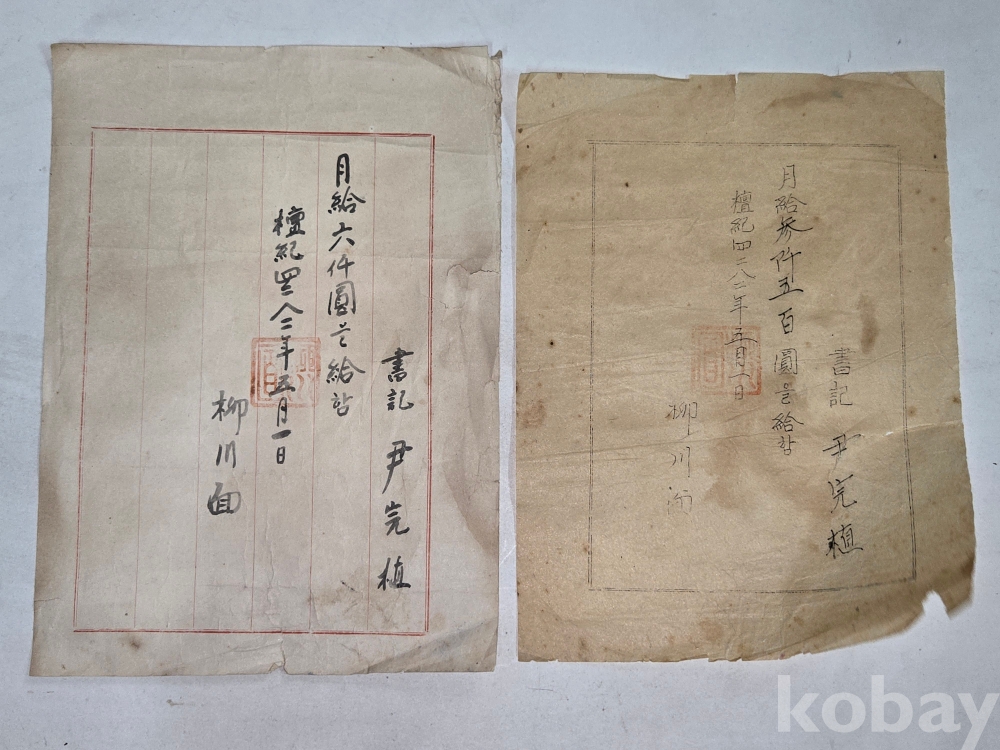 書記 尹完植
月給六仟圓을給함
檀紀四二八二年五月一日
柳川面
書記 尹完植
月給參仟五百圓을給함
檀紀四二八二年五月一日
柳川面
kobay